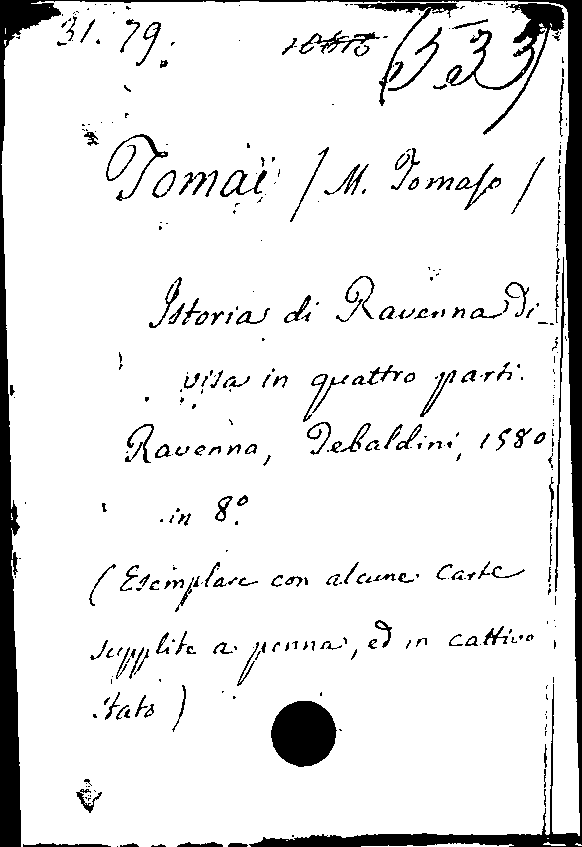 31. 79. (533)
Tomaï / M. Tomaso /
Istoria di Ravenna Di-
visa in quattro parti.
Ravenna, Tebaldini, 1580
in 8.º
(Esemplare con alcune carte
supplite a penna, ed in cattivo
stato)